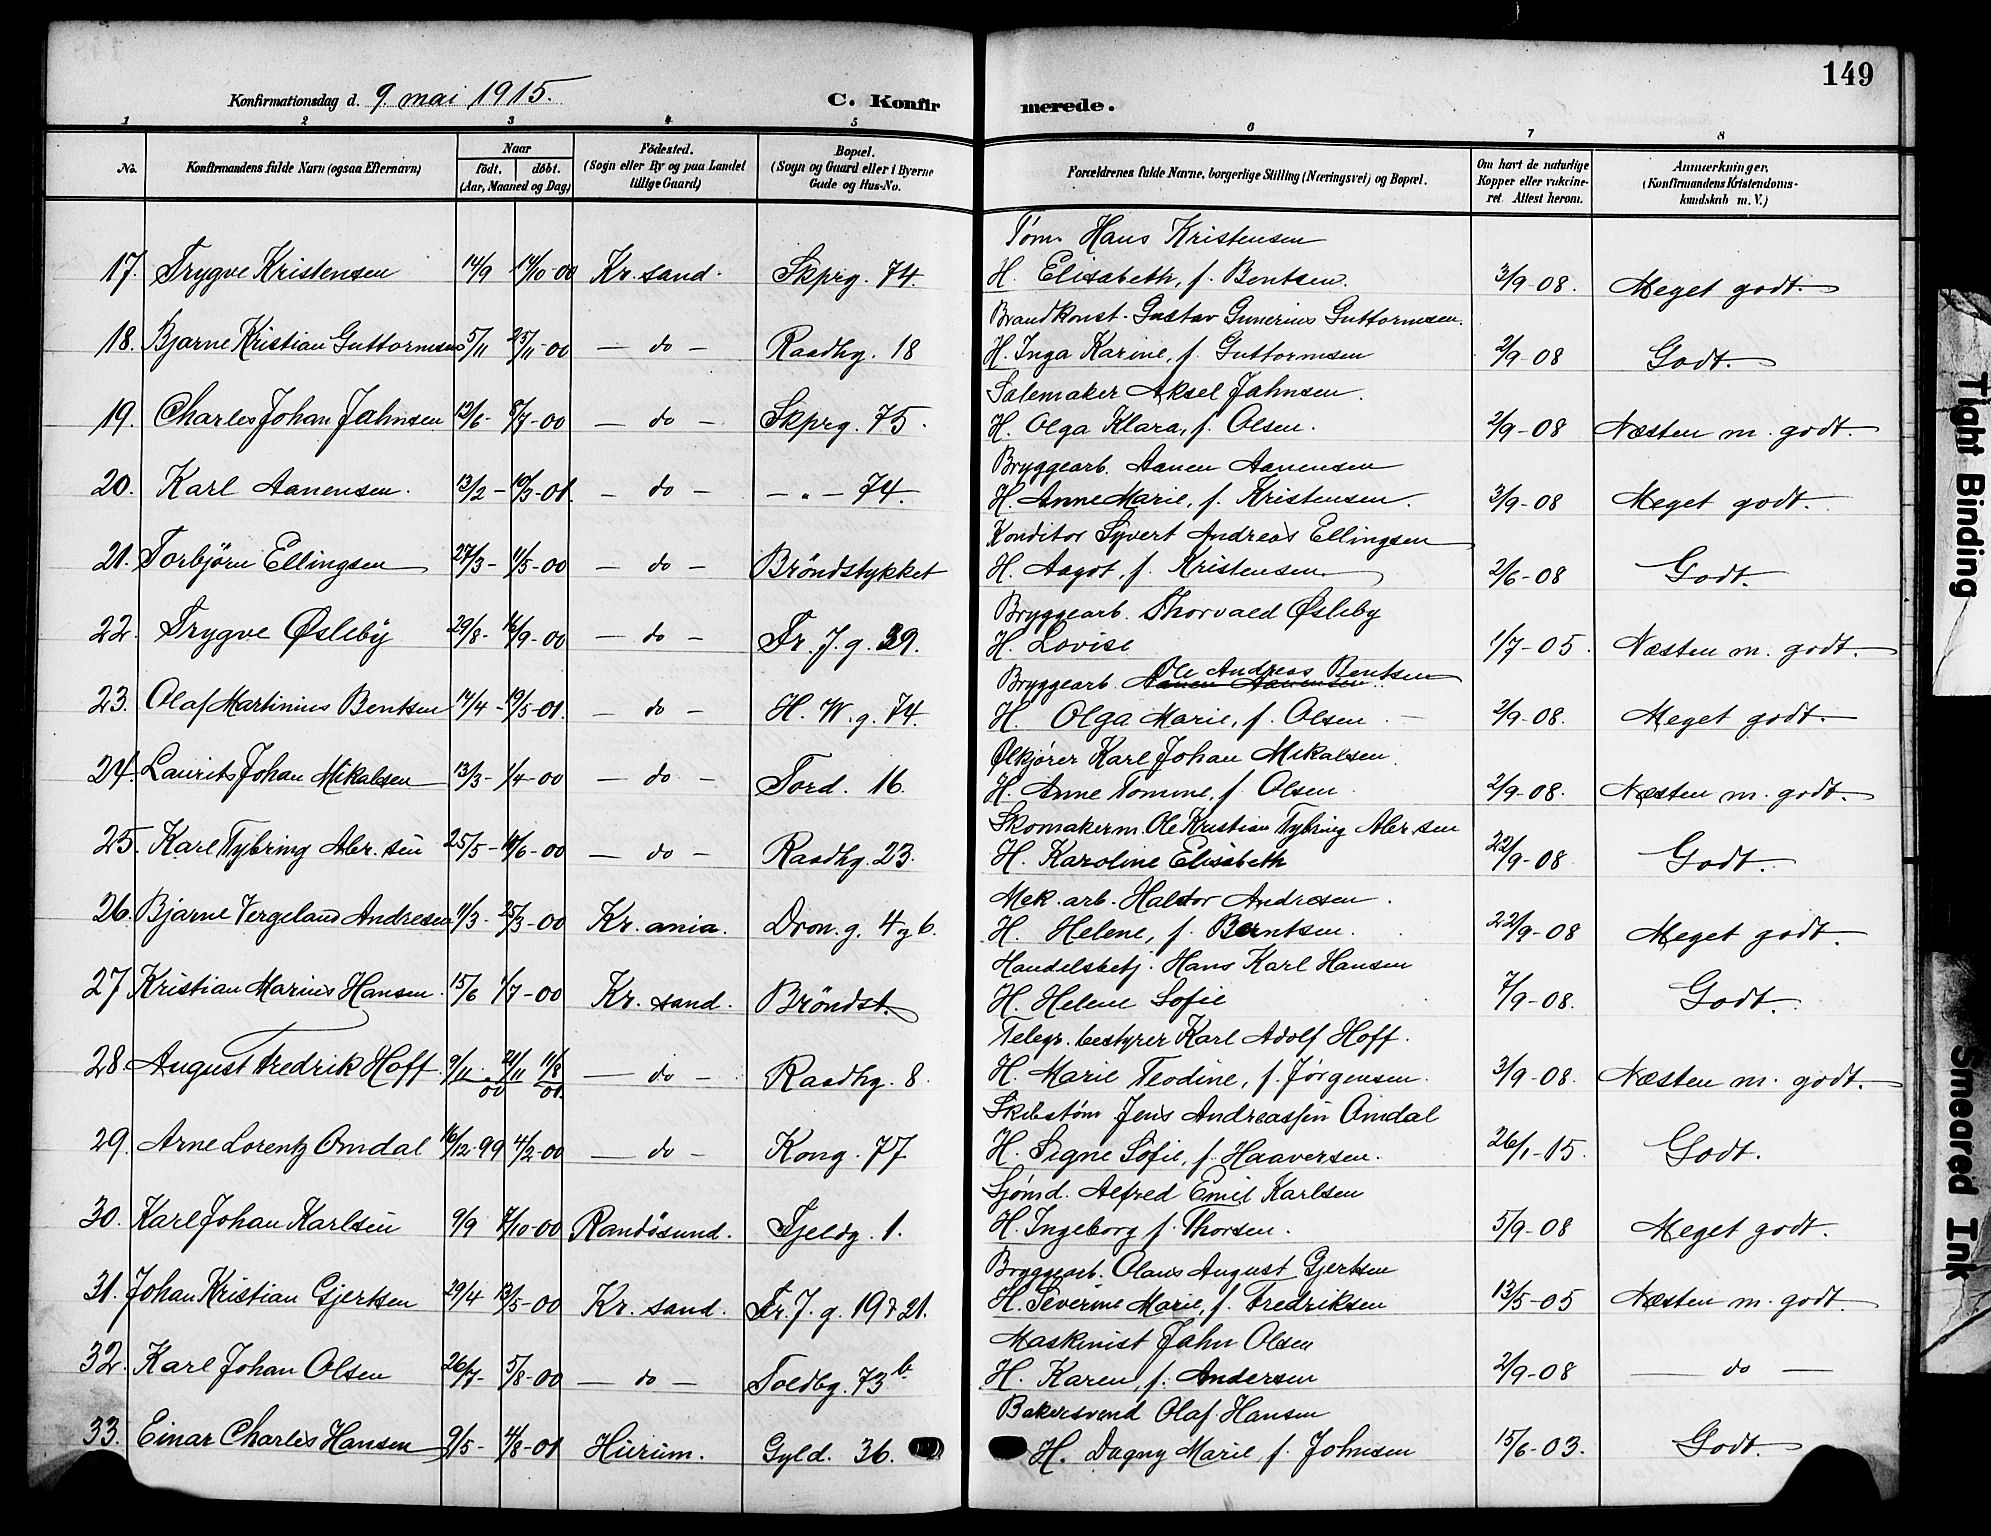 149
Konfirmationsdag d. 9. mai 1915.
C. Konfirmerede.
1 2 3 4 5 6 7 8
No. Konfirmandens fulde Navn (ogsaa Efternavn) Naar født. døbt. (Aar, Maaned og Dag) Fødested. (Sogn eller By og paa Landet tillige Gaard) Bopæl. (Sogn og Gaard eller i Byerne Gade og Hus-No. Forældrenes fulde Navne, borgerlige Stilling (Næringsvei) og Bopæl. Om havt de naturlige Kopper eller vakcineret. Attest herom. Anmærkninger. (Konfirmandens Kristendomskundskab m. V.)
Tøm. Hans Kristensen
17. Trygve Kristensen 14/9 14/10-00 Kr. sand. Skprg. 74. H. Elisabeth, f. Bentsen. 3/9-08. Meget godt.
Brandkonst. Gustav Gunerius Guttormsen.
18. Bjarne Kristian Guttormsen 5/11 25/11-00 — do — Raadhg. 18 H. Inga Karine, f. Guttormsen 2/9-08 Godt.
Salemaker Aksel Jahnsen.
19. Charles Johan Jahnsen 13/6- 8/7-00 — do — Skprg. 75. H. Olga Klara, f. Olsen. 2/9-08 Næsten m. godt.
Bryggearb. Aanen Aanensen
20. Karl Aanensen. 13/2- 10/3-01. — do — — " — 74. H. Anne Marie, f. Kristensen. 3/9-08 Meget godt.
Konditor Syvert Andreas Ellingsen
21. Torbjörn Ellingsen 27/3- 11/5-00 — do — Bröndstykket H. Aagot, f. Kristensen 2/6-08 Godt.
Bryggearb. Thorvald Øsleby
22. Trygve Øsleby 29/8- 16/9-00 — do — Fr. J. g. 39. H. Lovise 1/7-05. Næsten m. godt.
Bryggearb. Aanen Aanensen Ole Andreas Bentsen
23. Olaf Martinius Bentsen 14/4- 19/5-01. — do — H. W. g. 74. H. Olga Marie, f. Olsen 2/9-08. Meget godt.
Ølkjører Karl Johan Mikalsen
24. Laurits Johan Mikalsen 13/3- 1/4-00 — do — Tord. 16. H. Anne Tomine, f. Olsen 2/9-08. Næsten m. godt.
Skomakerm. Ole Kristian Tybring Abr.sen
25. Karl Tybring Abr.sen 25/5- 10/6-00 — do — Raadhg. 23. H. Karoline Elisabeth 22/9-08 Godt.
Mek. arb. Haldor Andresen.
26. Bjarne Vergeland Andresen 11/3- 25/3-00 Kr. ania. Dron. g. 4 og 6. H. Helene, f. Berntsen. 22/9-08 Meget godt.
Handelsbetj. Hans Karl Hansen
27 Kristian Marius Hansen. 15/6 1/7-00 Kr. sand. Bröndst. H. Helene Sofie 7/9-08. Godt.
Telegr. bestyrer Karl Adolf Hoff.
28 August Fredrik Hoff. 9/11 00 21/11 11/8 01. — do — Raadhg. 8. H. Marie Teodine, f. Jørgensen. 3/9-08. Næsten m. godt.
Skibstøm Jens Andreassen Omdal
29. Arne Lorentz Omdal 16/12-99 4/2-00 — do — Kong. 77 H. Signe Sofie, f. Haaversen. 26/1-15. Godt.
Sjømd. Alfred Emil Karlsen
30. Karl Johan Karlsen 9/9 7/10-00 Randösund. Fjeldg. 1. H. Ingeborg f. Thorsen. 5/9-08 Meget godt.
Bryggearb. Olaus August Gjertsen
31. Johan Kristian Gjertsen 29/4 13/5-00 Kr. sand. Fr. J. g. 19 & 21. H. Severine Marie, f. Fredriksen 13/5-05 Næsten m. godt.
Maskinist Jahn Olsen
32. Karl Johan Olsen 26/7- 5/8-00 — do — Toldbg. 73 b. H. Karen, f. Andersen 2/9-08 — do —
Bakersvend Olaf Hansen
33. Einar Charles Hansen 9/5- 4/8-01 Hurum. Gyld. 36. H. Dagny Marie, f. Johnsen 15/6-03. Godt.
Tight Binding
Smeared Ink